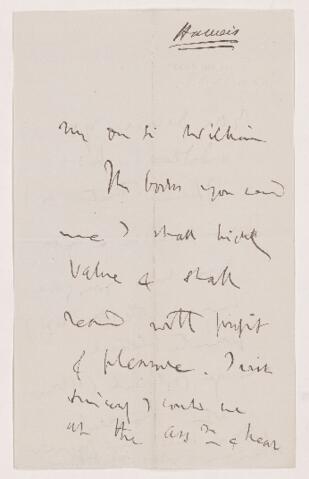 Haweis
My dr Sir William
The books you send
me I shall highly
value & shall
read with profit
& pleasure. I wish
sincerely I could be
at the assn & hear